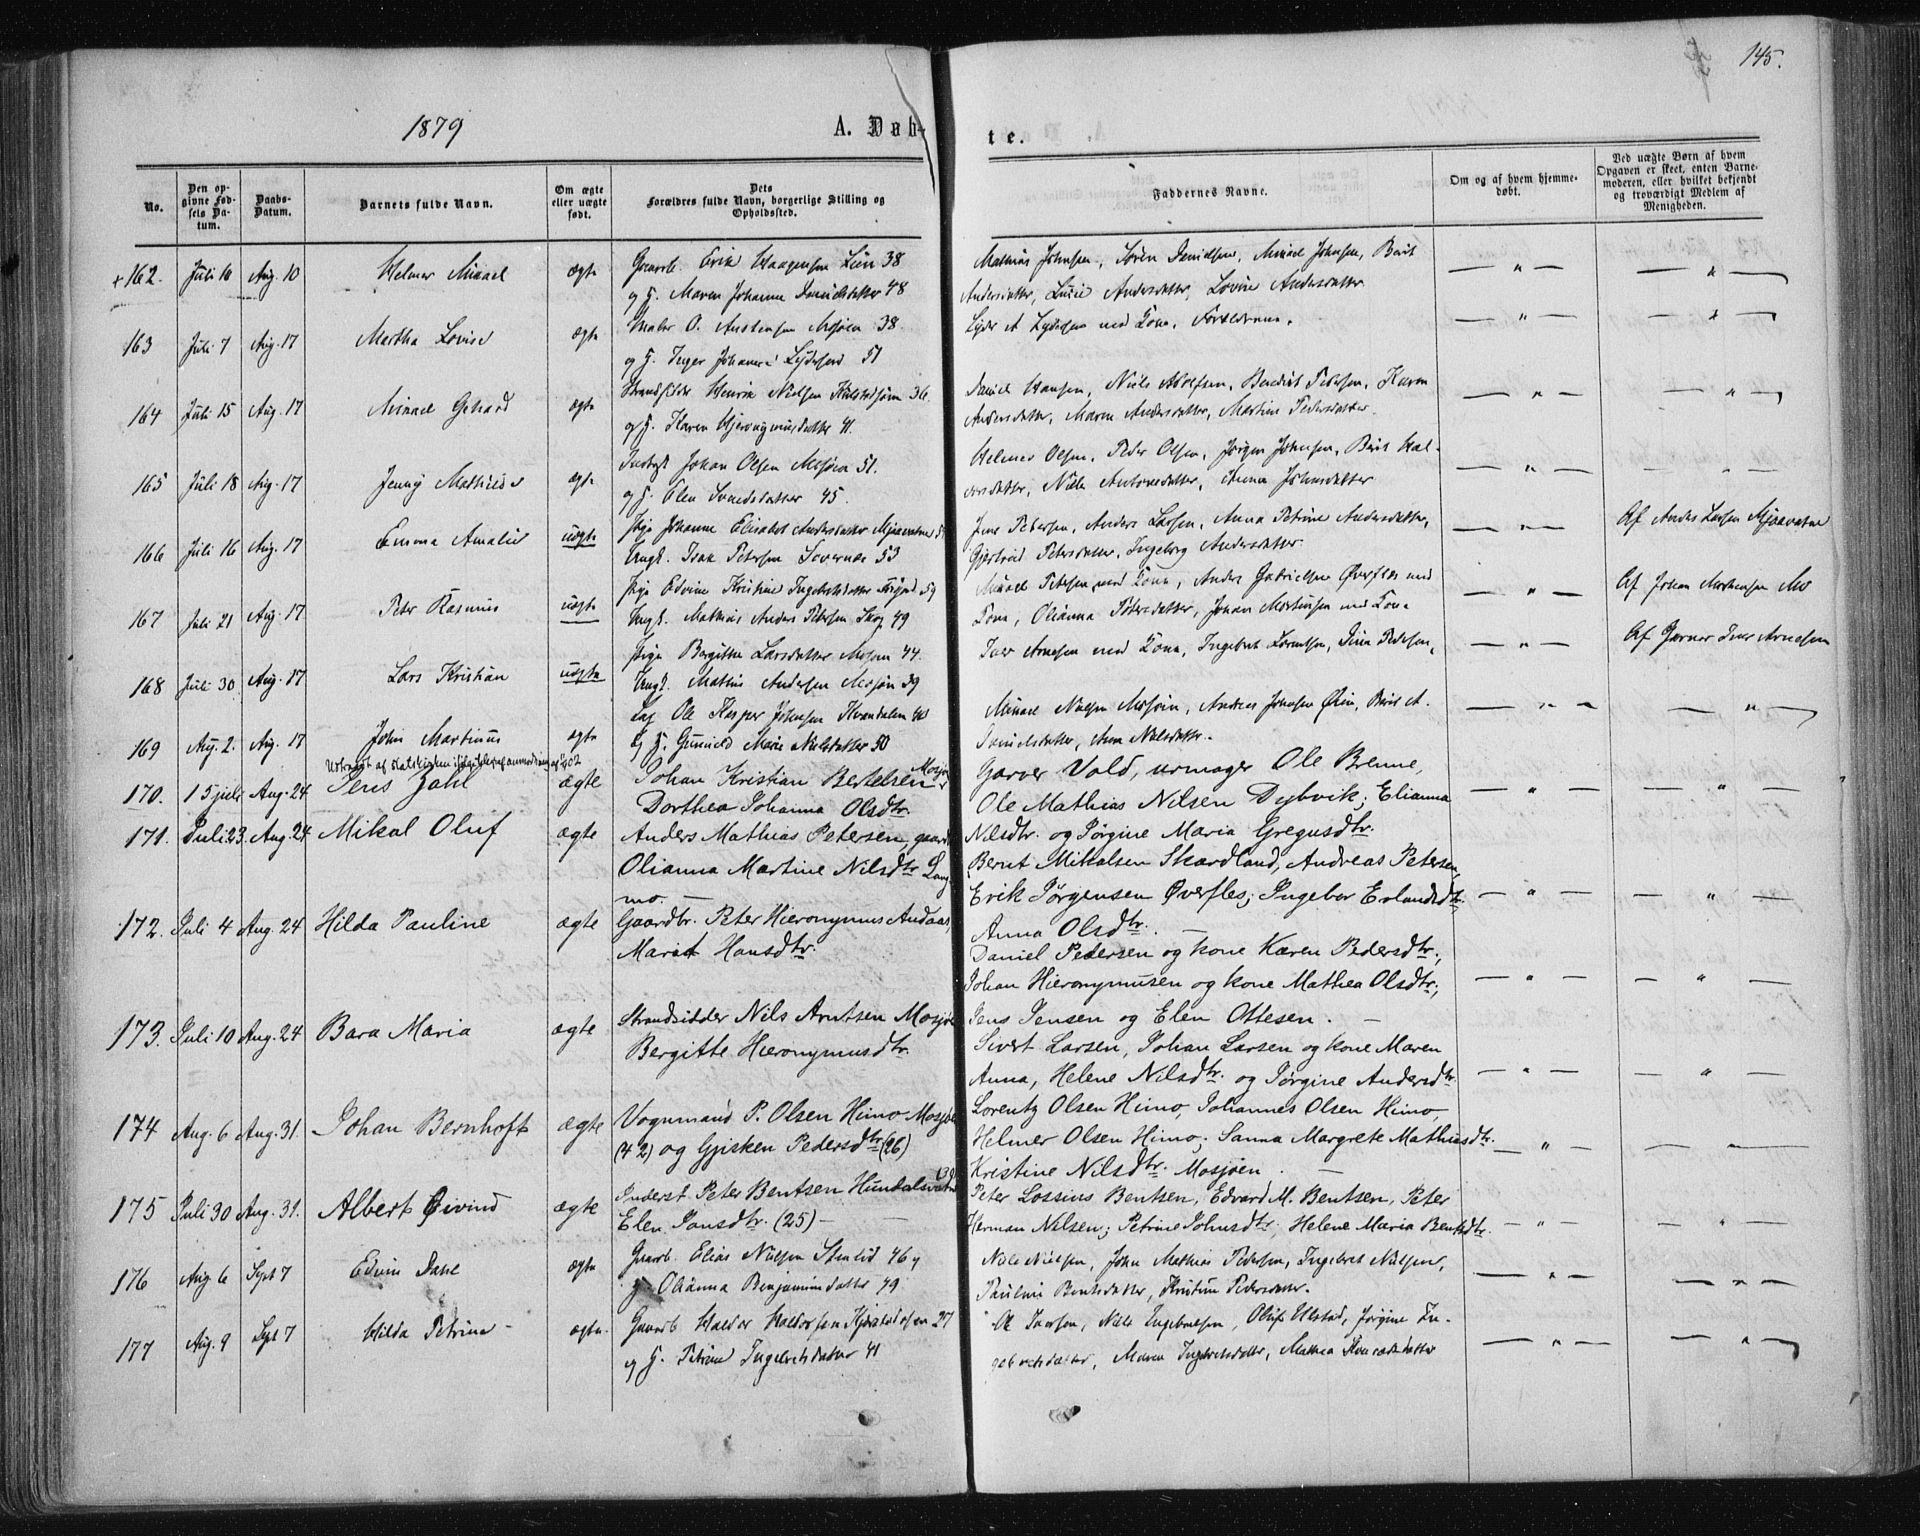 145.
1879
A. Døb-
te.
No.
Den opgivne Fødsels Datum.
Daabs-Datum.
Barnets fulde Navn.
Om ægte eller uægte født.
Dets Forældres fulde Navn, borgerlige Stilling og Opholdssted.
Faddernes Navne.
Om og af hvem hjemmedøbt.
Ved uægte Børn af hvem Opgaven er skeet, enten Barnemoderen, eller hvilket bekjendt og troværdigt Medlem af Menigheden.
+162. Juli 10 Aug. 10 Helmer Mikael ægte Gaardb. Erik Haagensen Lien 38
og H. Maren Johanna Danielsdatter 48
Mathias Johnsen, Søren Danielsen, Mikael Johnsen, Berit
Andersdatter, Lucie Andersdatter, Lovise Andersdatter
163 Juli 7 Aug. 17 Martha Lovise ægte Maler O. Austensen Mosjøen 38.
og H. Inger Johanne Lydersen 51
Lyder A Lydersen med Kone, Forældrene.
164 Juli 15 Aug. 17 Mikael Gerhard ægte Strandsidder Henrik Nielsen 36.
og H. Karen Hieronymusdatter 41.
Daniel Hansen, Niels Adolfsen, Benedict Pedersen, Karen
Andersdatter, Maren Andersdatter, Martine Pedersdatter.
165 Juli 18 Aug. 17 Jenny Mathilde ægte Indst Johan Olsen Mosjøen 51.
og H. Elen Svendsdatter 45.
Helmer Olsen, Peder Olsen, Jørgen Johnsen, Berit Hal-
vorsdatter, Nille Antonsdatter, Anna Johnsdatter
166 Juli 16 Aug. 17 Emma Amalie uægte Pige Johanne Elisabet Andersdatter Mjaavatne
Ungk. Isak Petersen Sovernes 53
Jens Pedersen, Anders Larsen, Anna Petrine Andersdatter,
Gjertrud Petersdatter, Ingeborg Andersdatter.
Af Anders Larsen Mjaavatne
167 Juli 21 Aug. 17 Peter Rasmus uægte Pige Edvine Kristine Ingebrigtsdatter 59
Ungk. Mathias Anders Petersen Skog 49
Mikael Petersen med Kone, Anders Gabrielsen Øverfles med
Kone, Olianna Petersdatter, Johan Mortensen med Kone
Af Johan Mortensen Mo
168 Juli 30 Aug. 17 Lars Kristian uægte Pige Bergitte Larsdatter Mosjøen 44.
Ungk. Mathias Andersen Mosjøen 39
Iver Arnesen med Kone, Ingebret Larentsen, Pedersen,
Af Garver Iver Arnesen
169 Aug. 2. Aug. 17 John Martinus ægte Ole Kasper Johnsen Kvandalen
og H. Gunild Marie Nielsdatter 50
Mikael Nielsen Mosjøen, Andreas Johnsen Øien, Berit A.
Danielsdatter, Anna Nielsdatter.
170. 15 juli Aug. 24 Jens Zahl ægte Johan Kristian Bertelsen Mosjøen
Dorthea Johanna Olsdtr.
Garver Vold, urmager Ole Brenne,
Ole Mathias Nilsen Dybvik; Elianna
171. Juli 23. Aug. 24 Mikal Oluf ægte Anders Mathias Petersen, gaardb.
Olianna Martine Nilsdtr Lang
mo.
Nilsdtr. og Jørgine Maria Gregusdtr.
Bernt Mikalsen Skardland, Andreas Petersen,
Erik Jørgensen Øverfles; Ingebor Erlandsdtr.
Anna Olsdtr.
172. Juli 4 Aug. 24 Hilda Pauline ægte Gaardbr. Peter Hieronymus Andaas,
Marit Hansdtr.
Daniel Pedersen og kone Karen Pedersdtr.;
Johan Hieronymusen og kone Mathea Olsdtr;
Jens Jensen og Elen Ottesen.
173. Juli 10 Aug. 24 Bara Maria ægte Strandsidder Nils Arntsen Mosjøen
Bergitte Hieronymusdtr.
Sivert Larsen, Johan Larsen og kone Maren
Anna, Helene Nilsdtr. og Jørgine Andersdtr.
174 Aug. 6 Aug. 31. Johan Bernhoft ægte Vognmand P. Olsen Himo Mosjøen
(42) og Gjisken Pedersdtr (26)
Lorentz Olsen Himo, Johannes Olsen Himo,
Helmer Olsen Himo; Sanna Margrete Mathiasdtr.
Kristine Nilsdtr. Mosjøen.
175 Juli 30 Aug. 31. Albert Øivind ægte Inderst Peter Bentsen Hundalsvatne
Elen Jonsdtr. (25)
Peter Lossius Bentsen, Edvard M. Bentsen, Peter
Herman Nilsen; Petrine Johnsdtr; Helene Maria Bentsdtr.
176 Aug 6 Sept 7 Edvin Dahl ægte Gaardb. Elias Nielsen Stenlid 46 og
H. Olianna Benjaminsdatter 49.
Niels Nielsen, John Mathias Pedersen, Ingebret Nielsen,
Pauline Bentsdatter, Kristine Pedersdatter.
177 Aug. 9 Sept 7 Hilda Petrine ægte. Gaardb Haldor Haldorsen 37
og H. Petrine Ingebretsdatter 41
Ole Iversen, Niels Ingebretsen, Oluf Ulstad, Jørgine In-
gebretsdatter, Maren Ingebretsdatter, Mathea Konradsdatter